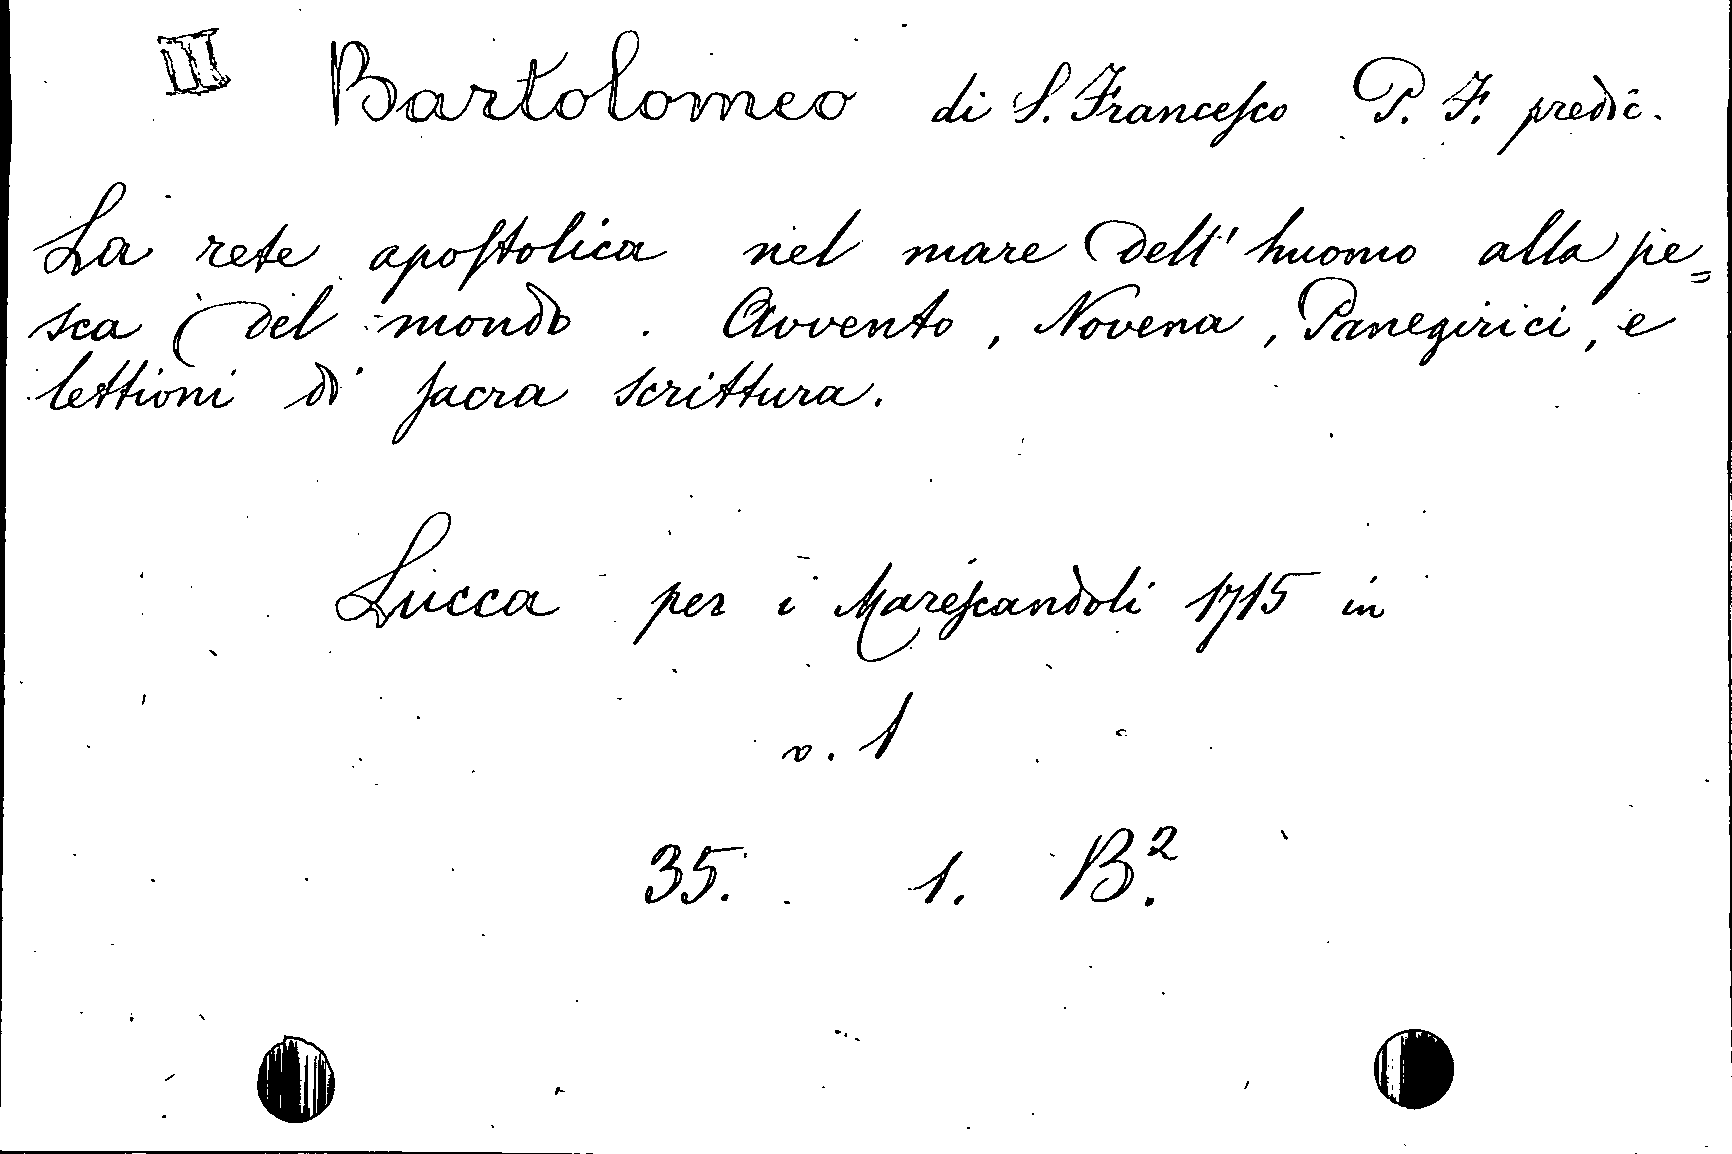 III Bartolomeo di S. Francesco P. F. predic.
La rete apostolica nel mare dell' huomo alla pe=
sca del mondo. Avvento, Novena, Panegirici, e
lettioni di sacra scrittura.
Lucca per i Marescandoli 1715 in
v. 1
35. 1. B.²